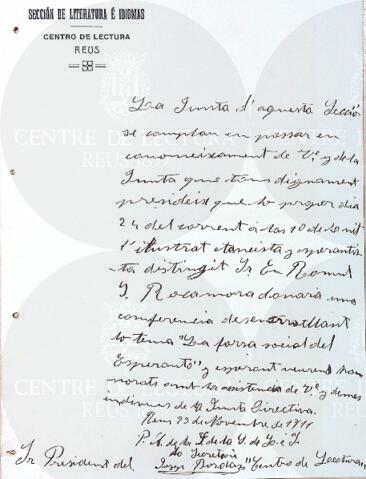 SECCIÓN DE LITERATURA É IDIOMAS
CENTRO DE LECTURA
REUS
La Junta d'aquesta Secció
se complau en posar en
coneixement de V. y de la
Junta que tan dignament
presideix que lo proper dia
24 del corrent á las 10 de la nit
l'ilustrat literat y esperantis
ta distingit Sr. En Romul
S. Rocamora donará una
conferencia desenrrotllant
lo tema "La forsa social del
Esperanto" y esperant veurens hon
orats amb la assistencia de V. y demes
individuos de la Junta Directiva.
Reus 23 de Novembre de 1911
P. A. de la J. de la S. de L. é I.
Lo Secretari
Sr. President del "Centro de Lectura"
CENTRE DE LECTURA
REUS
CENTRE DE LECTURA
REUS